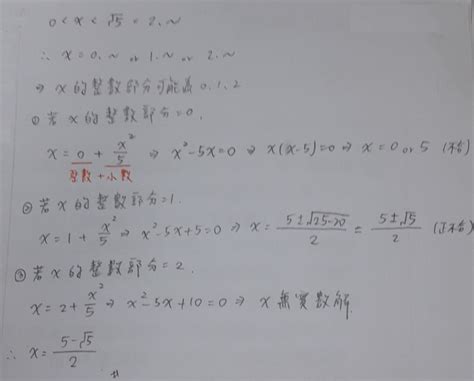 0 < x < √5 = 2.~
∴ x = 0.~ or 1.~ or 2.~
⇒ x 的整數部分可能為 0, 1, 2
① 若 x 的整數部分=0,
x = 0 + x²/5 ⇒ x²-5x=0 ⇒ x(x-5)=0 ⇒ x = 0 or 5 (不合)
整數 + 小數
② 若 x 的整數部分=1.
x = 1 + x²/5 ⇒ x²-5x+5=0 ⇒ x = (5±√(25-20))/2 = (5±√5)/2 (正不合)
③ 若 x 的整數部分=2.
x = 2 + x²/5 ⇒ x²-5x+10=0 ⇒ x 無實數解.
∴ x = (5-√5)/2 #